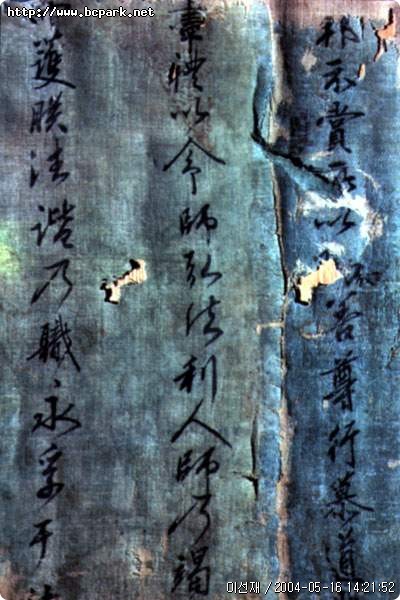 http://www.bcpark.net
示賞所以善尊行慕道
禮以令師弘法利人師乃竭
護朕法諧乃職永孚于
이선재 / 2004-05-16 14:21:52